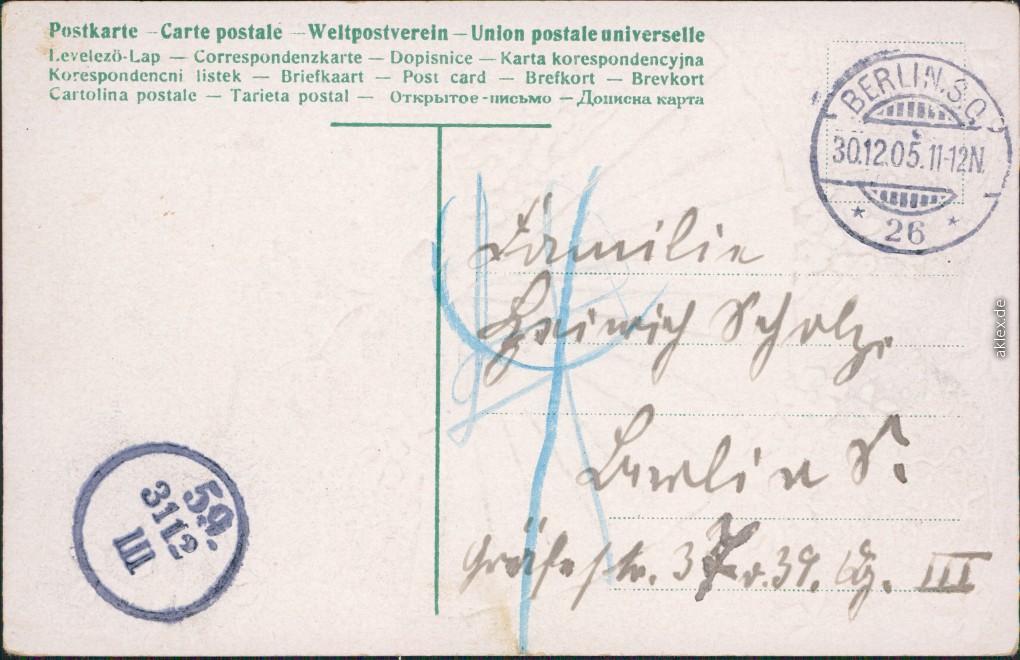 Postkarte – Carte postale – Weltpostverein – Union postale universelle
Levelezö-Lap — Correspondenzkarte — Dopisnice — Karta korespondencyjna
Korespondencni listek — Briefkaart — Post card — Brefkort — Brevkort
Cartolina postale — Tarieta postal — Открытое-письмо — Дописна карта
BERLIN.S.O.
30.12.05.11-12N.
* 26 *
Familie
Heinrich Scholz.
Berlin S.
Gräfestr. 37 39. III
59.
31 12
III
aklex.de